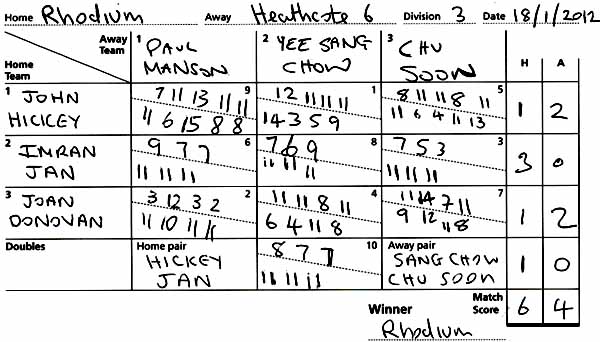 Home Rhodium Away Heathcote 6 Division 3 Date 18/1/2012
Away Team Home Team 1 PAUL MANSON 2 YEE SANG CHOW 3 CHU SOON H A
1 JOHN HICKEY
7 11 13 11 11 9 12 11 11 11 1 8 11 11 8 11 5
11 6 15 8 8 14 3 5 9 11 6 4 11 13 1 2
2 IMRAN JAN
9 7 7 6 7 6 9 8 7 5 3 3
11 11 11 11 11 11 11 11 11 3 0
3 JOAN DONOVAN
3 12 3 2 2 11 11 8 11 4 11 14 7 11 7
11 10 11 11 6 4 11 8 9 12 11 8 1 2
Doubles Home pair 8 7 7 10 Away pair
HICKEY JAN 11 11 11 SANG CHOW CHU SOON 1 0
Winner Match Score 6 4
Rhodium